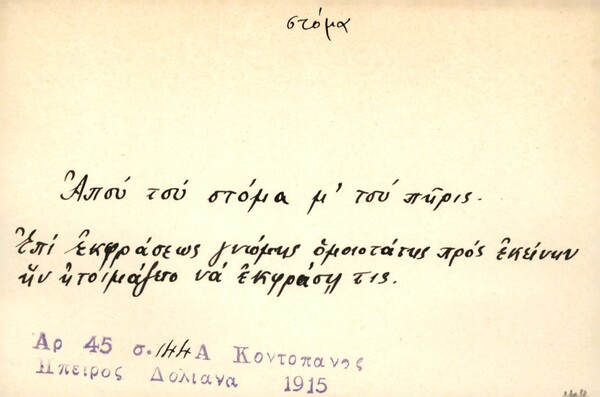 στόμα
Ἀπού τού στόμα μ' τού πῆρις.
Ἐπί ἐκφράσεως γνώμης ὁμοιοτάτης πρός ἐκείνην
ἥν ἡτοίμαζετο νά ἐκφράσῃ τις.
Αρ 45 σ. 144 Α Κοντοπανος
Ηπειρος Δολιανα 1915